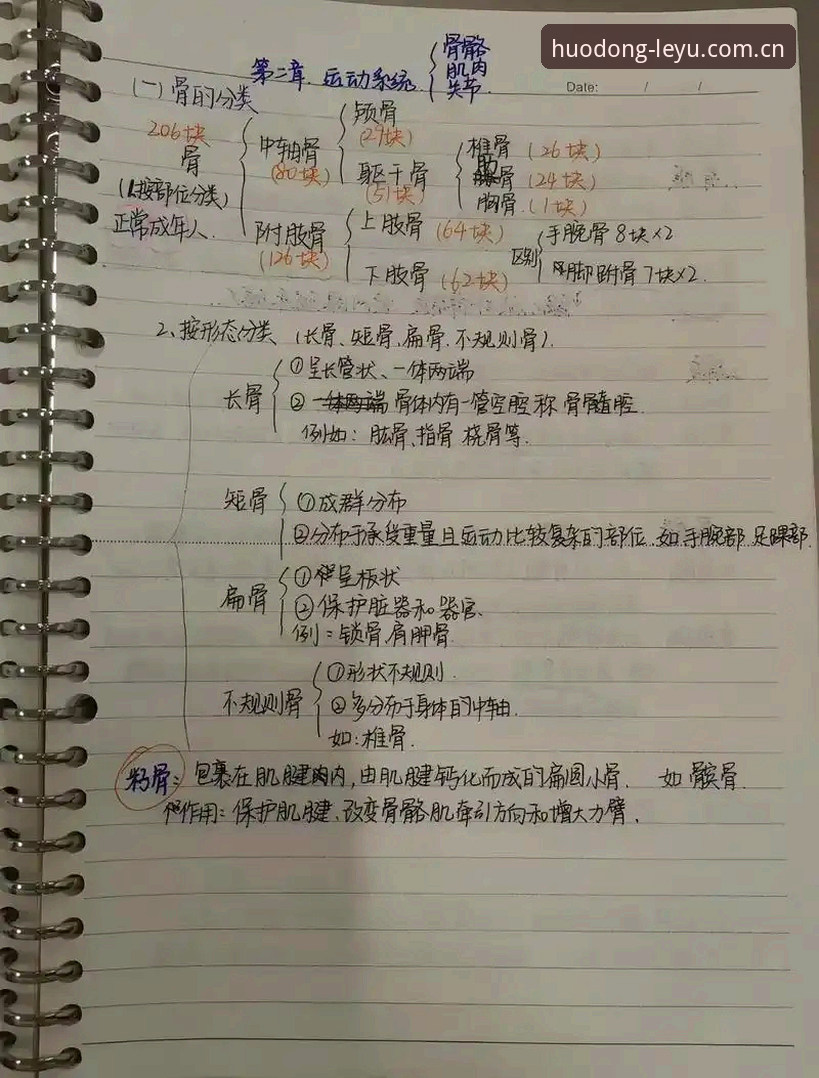 huodong-leyu.com.cn
第二章.运动系统
骨骼
肌肉
关节
Date: / /
(一)骨的分类
206块
骨
(1.按部位分类)
正常成年人.
中轴骨
(80块)
颅骨
(29块)
躯干骨
(51块)
椎骨(26块)
肋骨(24块)
胸骨(1块)
附肢骨
(126块)
上肢骨(64块)
下肢骨(62块)
区别
手腕骨8块×2
脚跗骨7块×2.
2、按形态分类(长骨、短骨、扁骨、不规则骨).
长骨
①呈长管状、一体两端
② 一体两端 骨体内有一管空腔称 骨髓腔.
例如:肱骨、指骨 桡骨等.
短骨
①成群分布
②分布于承受重量且运动比较复杂的部位 如手腕部 足踝部.
扁骨
①呈板状
②保护脏器和器官.
例:锁骨.肩胛骨.
不规则骨
①形状不规则.
②多分布于身体的中轴.
如:椎骨.
籽骨:包裹在肌腱内,由肌腱钙化而成的扁圆小骨. 如 髌骨.
作用:保护肌腱、改变骨骼肌牵引方向和增大力臂.